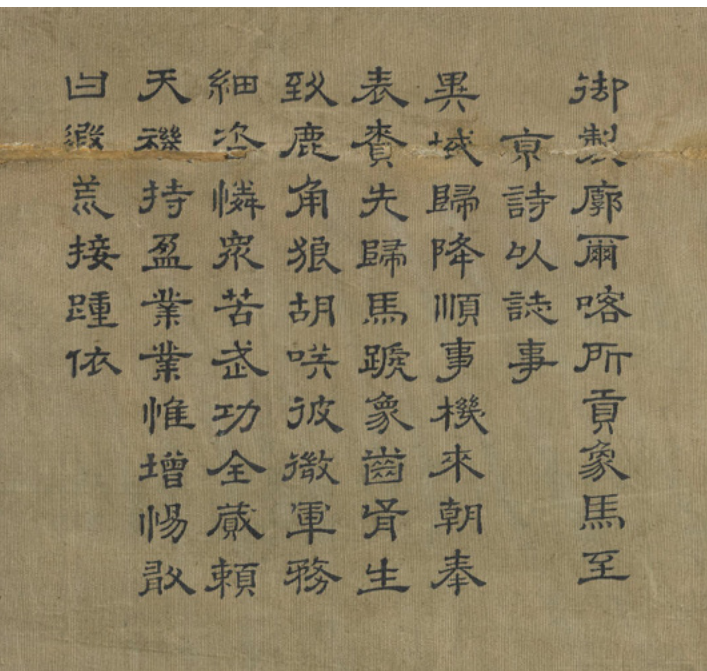 御製廓爾喀所貢象馬至
京詩以誌事
異域歸降順事機來朝奉
表賚先歸馬蹏象齒胥生
致鹿角狼胡咲彼微軍務
細咨憐衆苦武功全蕆頼
天禨持盈業業惟增惕敢
曰遐荒接踵依